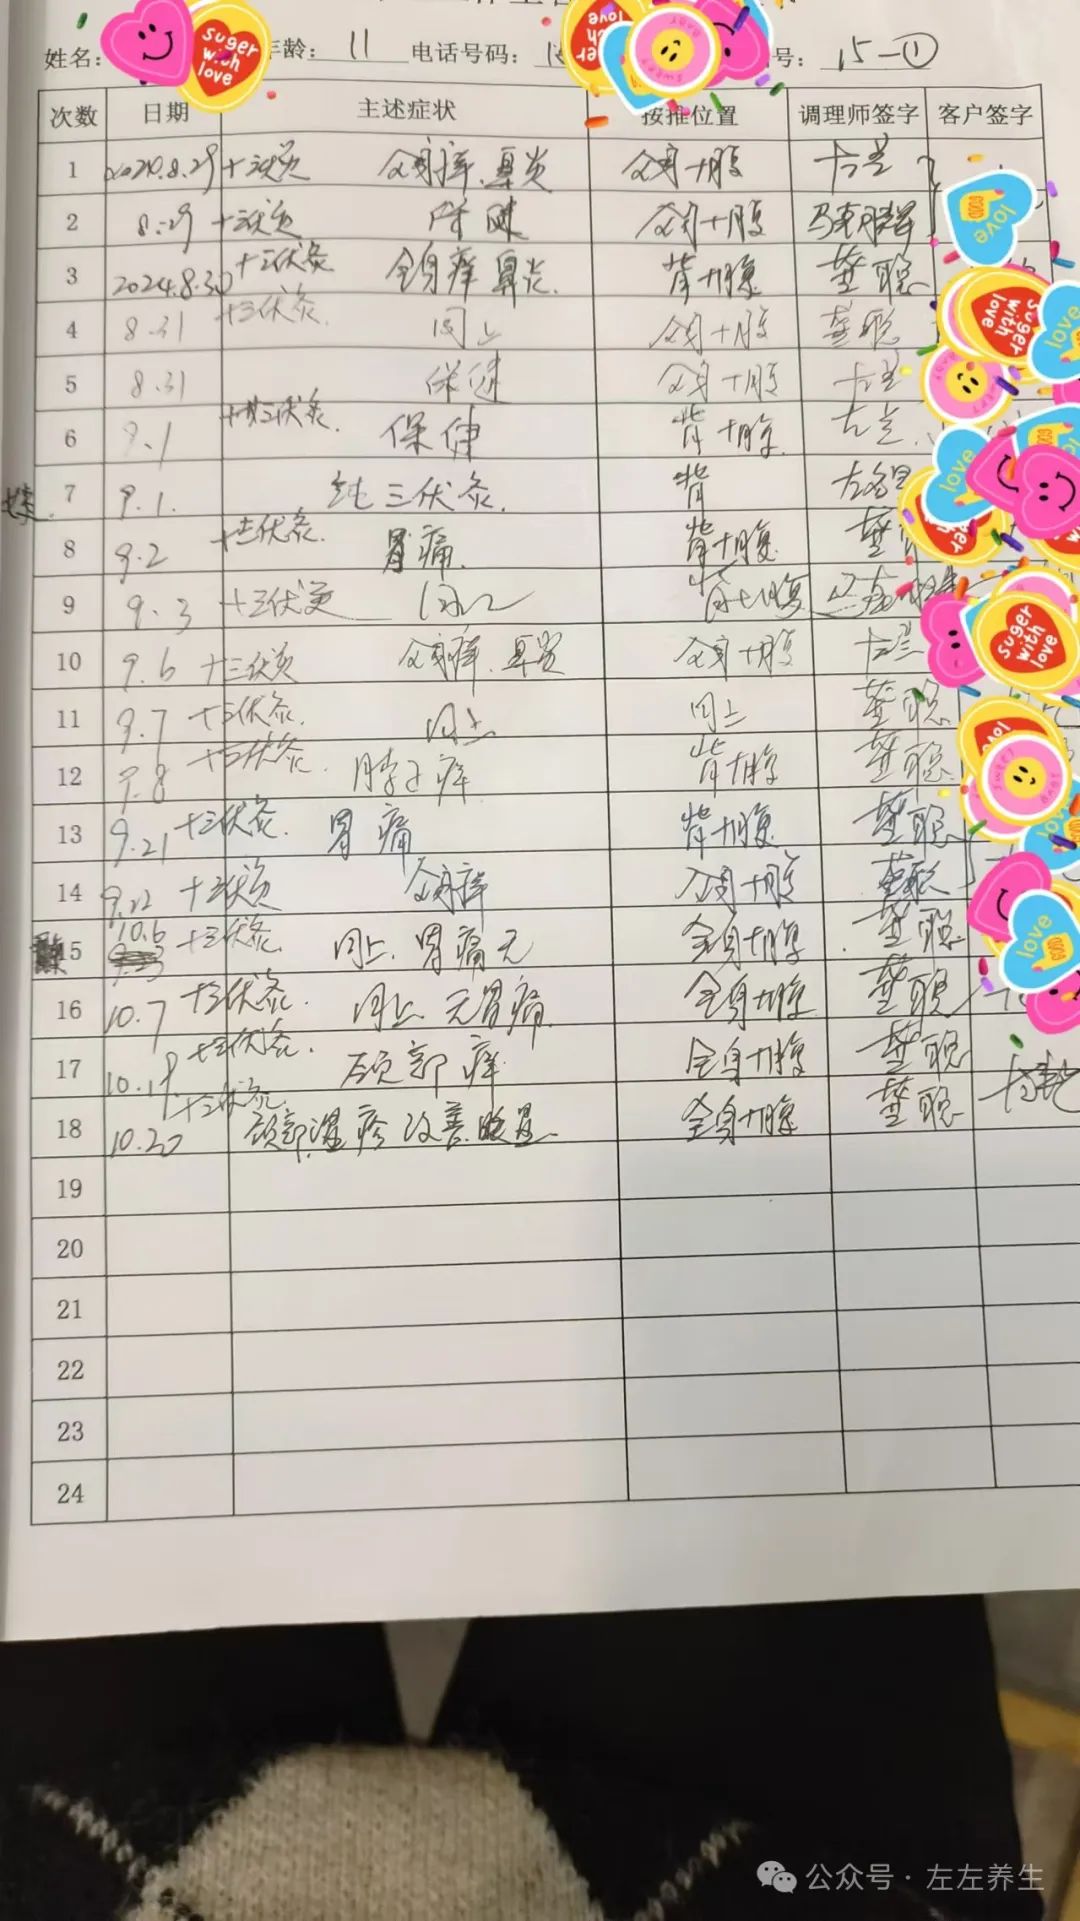 姓名: 年龄: 11 电话号码: 号: 15-①
次数 日期 主述症状 按推位置 调理师签字 客户签字
1 2024.8.29 +三伏灸 全身痒.鼻炎 全身+腹
2 8.29 +三伏灸 保健 全身+腹
3 2024.8.30 +三伏灸 全身痒 鼻炎. 背+腹 董聪
4 8.31 +三伏灸. 同上 全身+腹 董聪
5 8.31 保健 全身+腹
6 9.1 +三伏灸. 保健 背+腹.
7 9.1. 纯三伏灸. 背
8 9.2 +三伏灸. 胃痛. 背+腹. 董
9 9.3 +三伏灸 同上 背+腹
10 9.6 +三伏灸 全身痒.鼻炎 全身+腹
11 9.7 +三伏灸. 同上 同上 董聪
12 9.8 +三伏灸. 脖子痒 背+腹 董聪
13 9.21 +三伏灸. 胃痛 背+腹 董聪
14 9.22 +三伏灸 全身痒 全身+腹 董聪
15 10.6 +三伏灸. 同上.胃痛无 全身+腹 董聪
16 10.7 +三伏灸. 同上.无胃痛. 全身+腹 董聪
17 10.19 +三伏灸. 颈部痒. 全身+腹 董聪
18 10.20 +三伏灸 颈部湿疹改善明显. 全身+腹 董聪
19
20
21
22
23
24
suger with love
love
公众号 · 左左养生